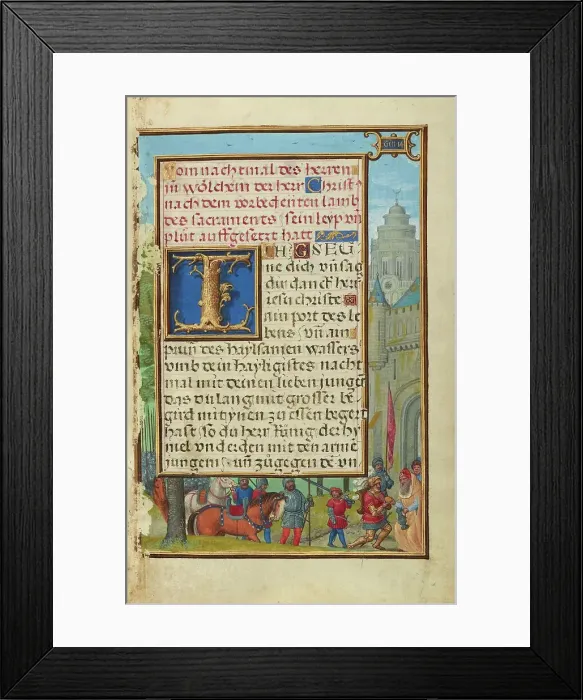 Vom nachtmal des herren
in wölchem der herr Christꝰ
nach dem vorbedeuten lamb
des sacraments sein leyp vñ
plůt auffgesetzt hatt
ICH GSEG
ne dich vñ sag
dir danck herr
iesu christe
ain port des le
bens vñ ain
prun des haylsamen wassers
vmb dein hayligistes nacht
mal mit deinen lieben jungern
das du lang mit grosser be
gird mit ynen zu essen begert
hast so du herr künig der hy
mel vnd erden mit den arme
jungern vñ zůgegen de vn